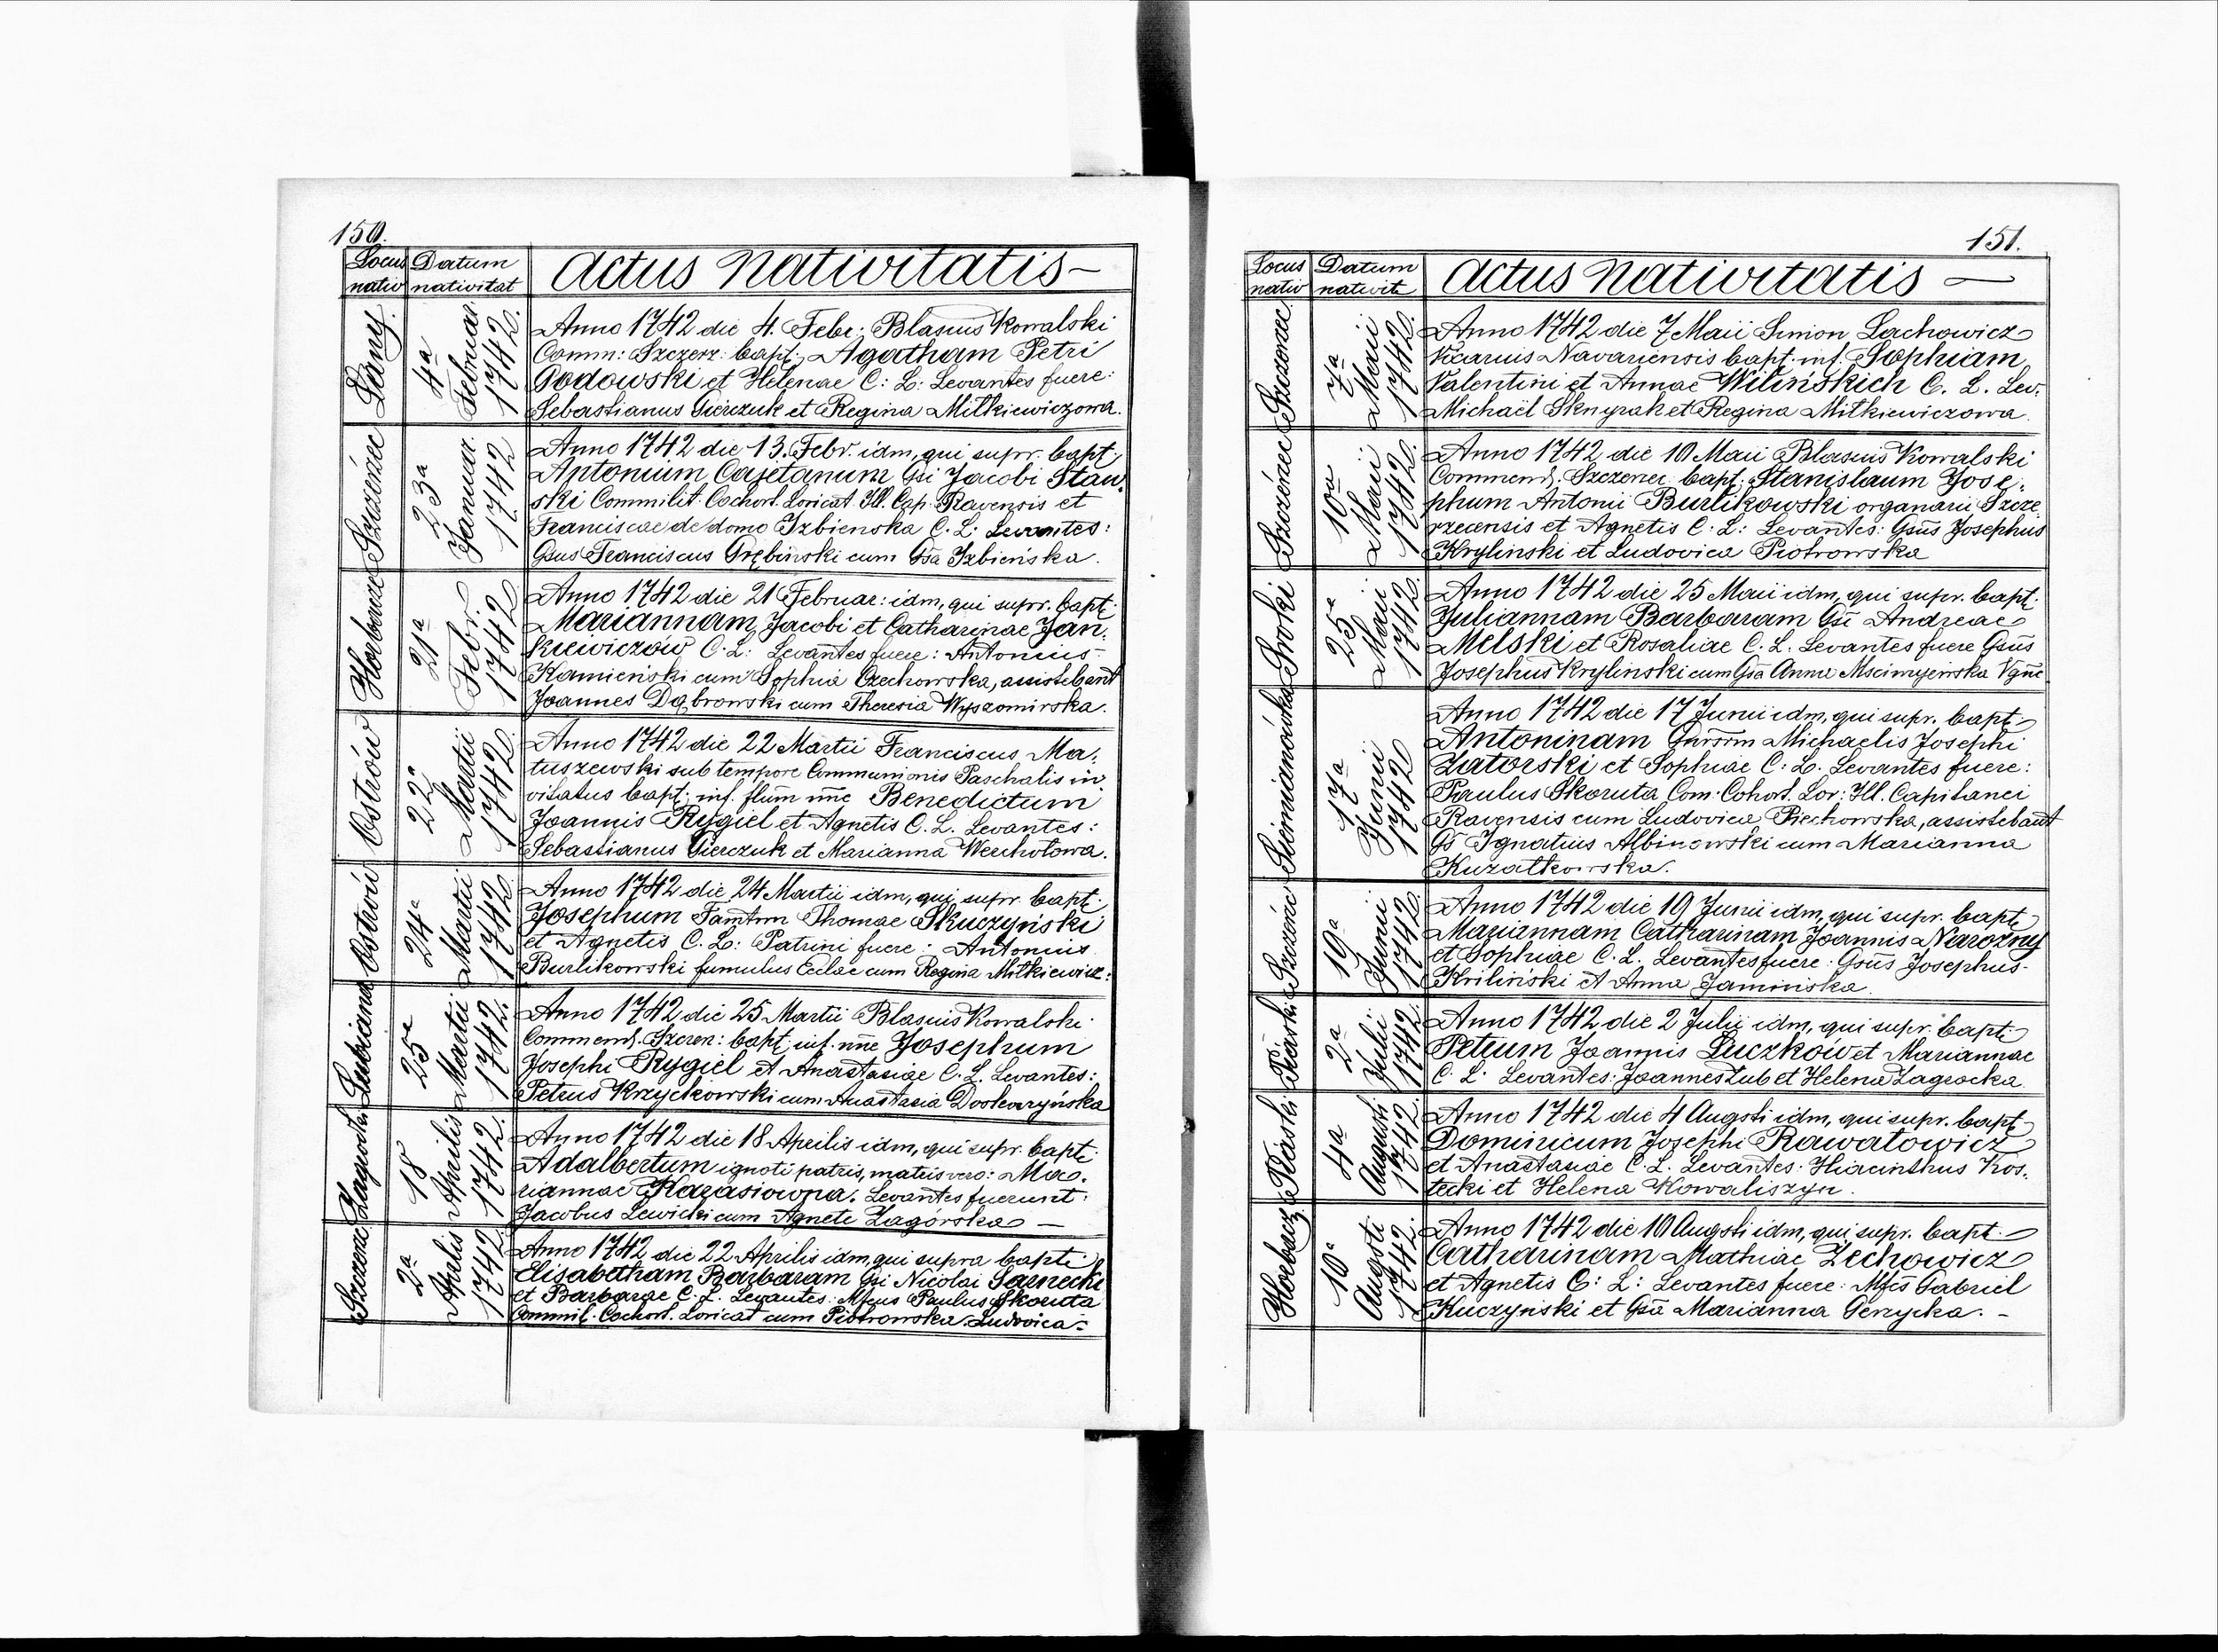 150.
Locus nativ
Datum nativitat
Actus Nativitatis
Łany
4a Februar. 1742.
Anno 1742 die 4. Febr: Blasius Kowalski
Comm: Szczerz: bapt: Agatham Petri
Godowski et Helenae C: L: Levantes fuere:
Sebastianus Gierczuk et Regina Mitkiewiczowa.
Szczerzec
23a Januar. 1742
Anno 1742 die 13. Febr. idm, qui supr. bapt:
Antonium Cajetanum Gsi Jacobi Staw
ski Commilit. Cochort. Loricat. Ill. Cap. Ravensis et
Franciscae de domo Izbienska C: L: Levantes:
Gsus Franciscus Grębinski cum Gsa Izbieńska.
Horbacze
21a Febr. 1742
Anno 1742 die 21 Februar: idm, qui supr. bapt:
Mariannam Jacobi et Catharinae Jan,
kiewiczów C. L: Levantes fuere: Antonius
Kamieński cum Sophia Czechowska, assistebant
Joannes Dąbrowski cum Theresia Wyszomirska.
Ostrów
22a Martii 1742.
Anno 1742 die 22 Martii Franciscus Ma,
tuszewski sub tempore Communionis Paschalis in
vitatus bapt: inf. flum nne Benedictum
Joannis Rygiel et Agnetis C. L. Levantes:
Sebastianus Gierczuk et Marianna Werchotowa.
Ostrów
24a Martii 1742.
Anno 1742 die 24 Martii idm, qui supr. bapt:
Josephum Famtrm Thomae Skuczyński
et Agnetis C. L: Patrini fuere: Antonius
Burlikowski famulus Eclae cum Regina Mitkiewicz:
Lubiana
25a Martii 1742.
Anno 1742 die 25 Martii Blasius Kowalski
Commend. Szczerz: bapt inf. nne Josephum
Josephi Rygiel et Anastasiae C. L. Levantes:
Petrus Krzyckowski cum Anastasia
Zagrodki
18 Aprilis 1742.
Anno 1742 die 18 Aprilis idm, qui supr. bapt:
Adalbertum ignoti patris, matris vero: Ma,
riannae Karasiowna. Levantes fuerunt:
Jacobus Lewicki cum Agnete Zagórska —
Szczerzec
2a Aprilis 1742.
Anno 1742 die 22 Aprilis idm, qui supra bapt:
Elisabetham Barbaram Gsi Nicolai Sarnecki
et Barbarae C. L. Levantes: Mfcus Paulus Skoruta
Commil. Cochort. Loricat cum Piotrowska Ludovica.
151.
Locus nativ
Datum nativit
Actus Nativitatis —
Szczerzec
7a Maii 1742.
Anno 1742 die 7 Maii Simon Lachowicz
Vicarius Navariensis bapt. inf. Sophiam
Valentini et Annae Wilińskich C. L. Lev:
Michaël Sknyrak et Regina Mitkiewiczowa.
Szczerzec
10a Maii 1742.
Anno 1742 die 10 Maii Blasius Kowalski
Commend. Szczerzec bapt. Stanislaum Jose,
phum Antonii Burlikowski organarii Szcze
rzecensis et Agnetis C: L: Levantes: Gsus Josephus
Krylinski et Ludovica Piotrowska
Sroki
25a Maii 1742.
Anno 1742 die 25 Maii idm, qui supr. bapt:
Juliannam Barbaram Gsi Andreae
Melski et Rosaliae C. L. Levantes fuere Gsus
Josephus Krylinski cum Gsa Anna
Siemianówka
17a Junii 1742
Anno 1742 die 17 Junii idm, qui supr. bapt:
Antoninam Michaelis Josephi
Zatorski et Sophiae C: L. Levantes fuere:
Paulus Skoruta Com: Cohort. Lor: Ill. Capitanei
Ravensis cum Ludovica Piechowska, assistebant
Gs Ignatius Albinowski cum Marianna
Kuzatkowska.
Szczerzec
19a Junii 1742
Anno 1742 die 19 Junii idm, qui supr. bapt:
Mariannam Catharinam Joannis Narożny
et Sophiae C. L. Levantes fuere: Gsus Josephus
Kriliński et Anna Jamińska.
Piaski
2a Julii 1742
Anno 1742 die 2 Julii idm, qui supr. bapt:
Petrum Joannis Łuczków et Mariannae
C. L. Levantes: Joannes Łub et Helena Zagrocka
Piaski
4a Augusti 1742.
Anno 1742 die 4 Augsti idm, qui supr. bapt:
Dominicum Josephi Rawatowicz
et Anastasiae C. L. Levantes: Hiacinthus Kos,
tecki et Helena Kowaliszyn.
Horbacz
10a Augusti 1742.
Anno 1742 die 10 Augsti idm, qui supr. bapt:
Catharinam Mathiae Zechowicz
et Agnetis C: L: Levantes fuere: Mfcus Gabriel
Kuczyński et Gsa Marianna Gerzycka. —